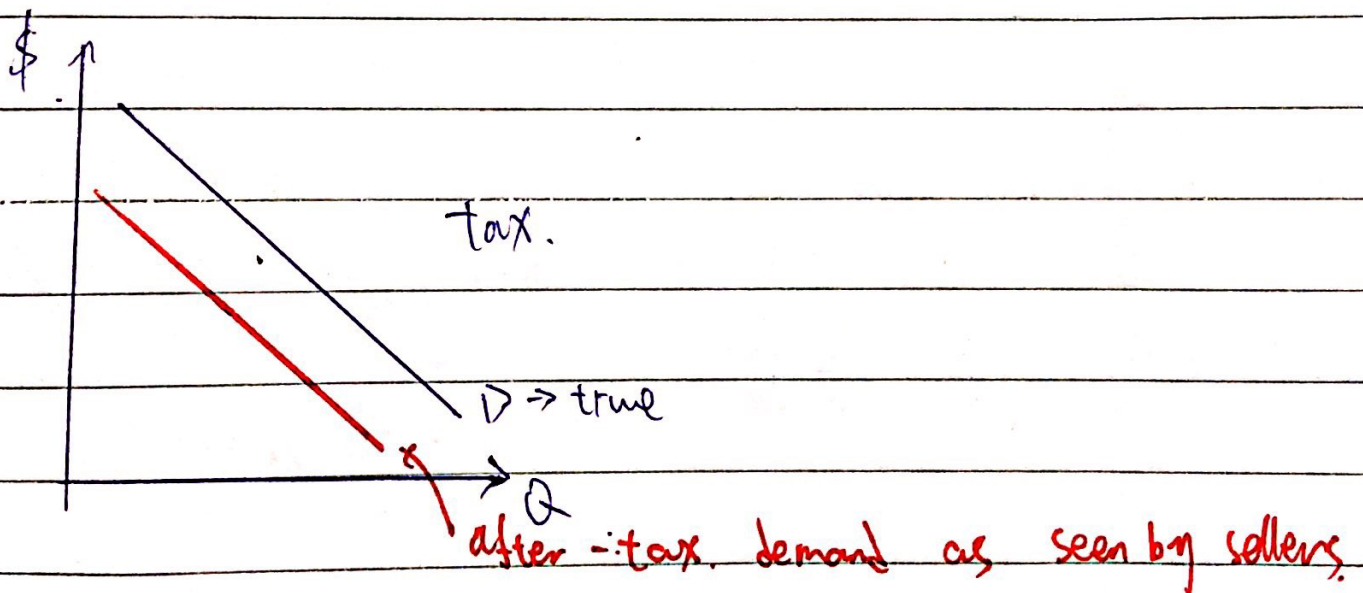 $
tax.
D → true
Q
after-tax. demand as seen by sellers.